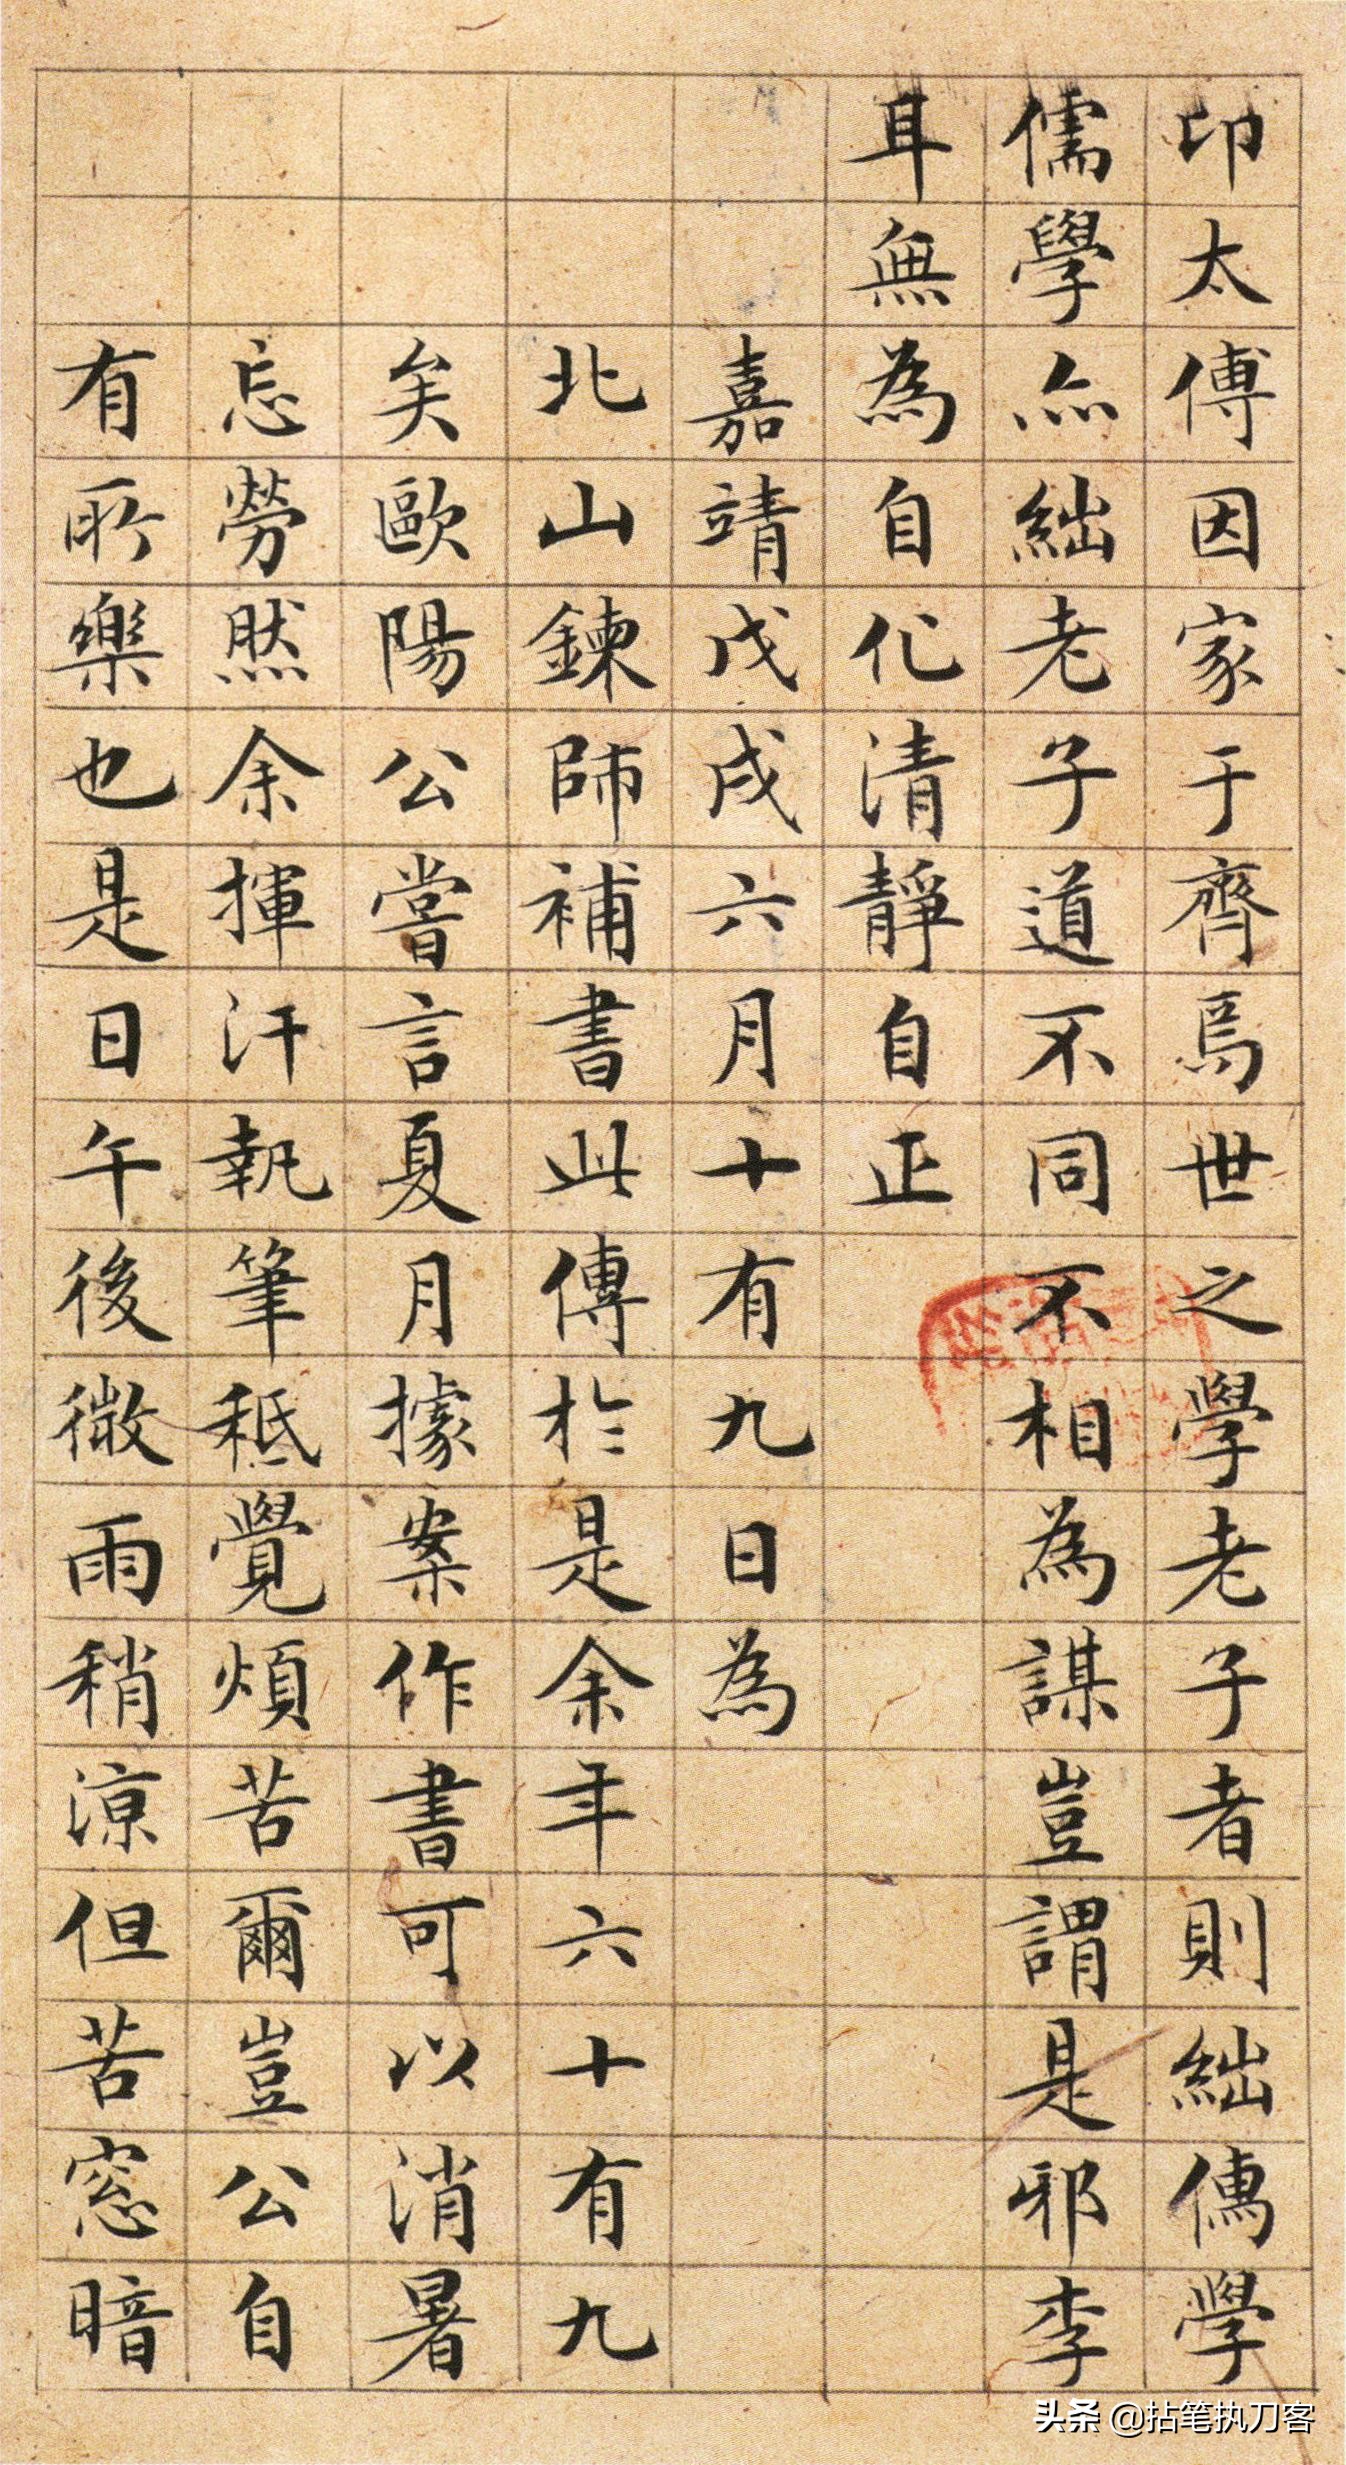 卬太傅因家于齊焉世之學老子者則絀儒學
儒學亦絀老子道不同不相為謀豈謂是邪李
耳無為自化清靜自正
嘉靖戊戌六月十有九日為
北山鍊師補書此傳於是余年六十有九
矣歐陽公嘗言夏月據案作書可以消暑
忘勞然余揮汗執筆秪覺煩苦爾豈公自
有所樂也是日午後微雨稍涼但苦窓暗
头条 @拈笔执刀客